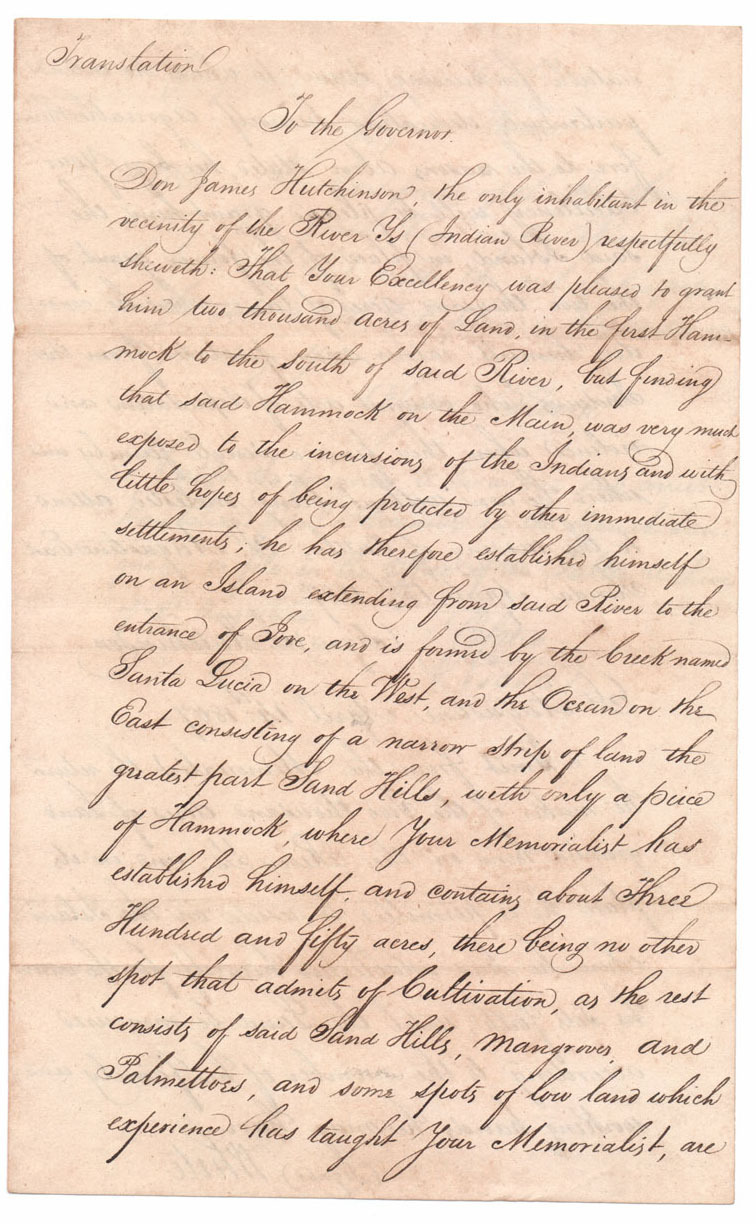 Translation
To the Governor.
Don James Hutchinson, the only inhabitant in the
vecinity of the River Ys (Indian River) respectfully
sheweth: That Your Excellency was pleased to grant
him two thousand acres of Land, in the first Ham-
mock to the South of said River, but finding
that said Hammock on the Main, was very much
exposed to the incursions of the Indians and with
little hopes of being protected by other immediate
settlements; he has therefore established himself
on an Island extending from said River to the
entrance of Jove, and is formed by the Creek named
Santa Lucia on the West, and the Ocean on the
East consisting of a narrow strip of land the
greatest part Sand Hills, with only a piece
of Hammock, where Your Memorialist has
established himself, and contains about Three
Hundred and fifty acres, there being no other
spot that admits of Cultivation, as the rest
consists of said Sand Hills, Mangroves, and
Palmettoes, and some spots of low land which
experience has taught Your Memorialist, are